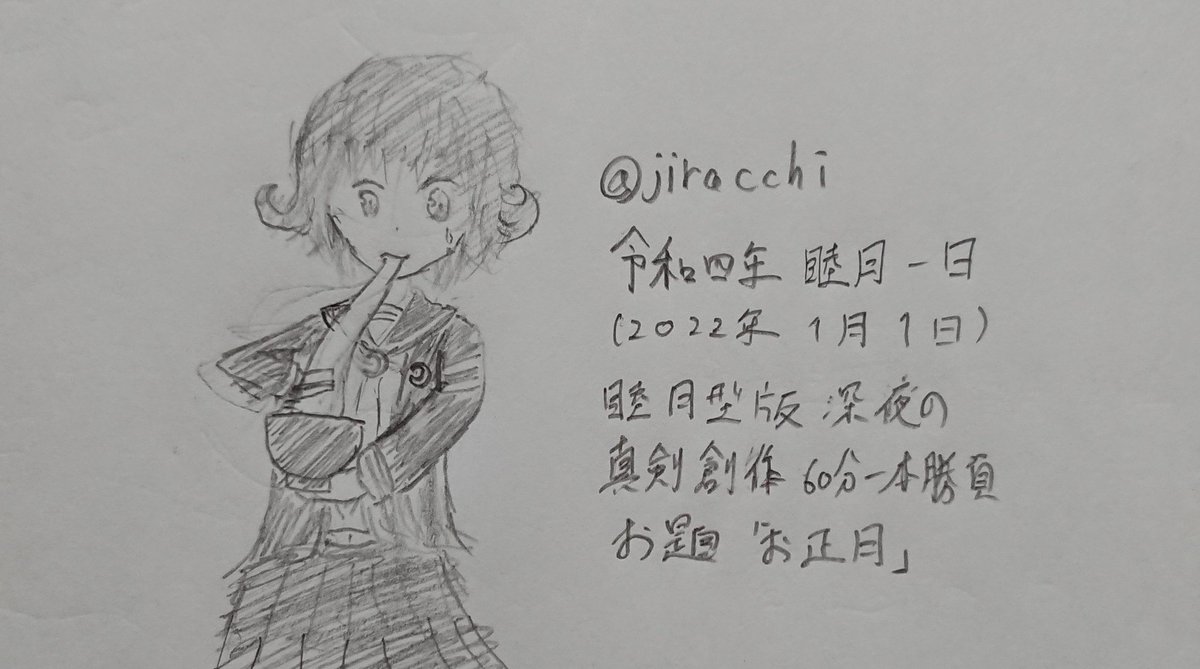 @jiracchi
令和四年 睦月一日
(2022年 1月1日)
睦月型版 深夜の
真剣創作60分一本勝負
お題「お正月」